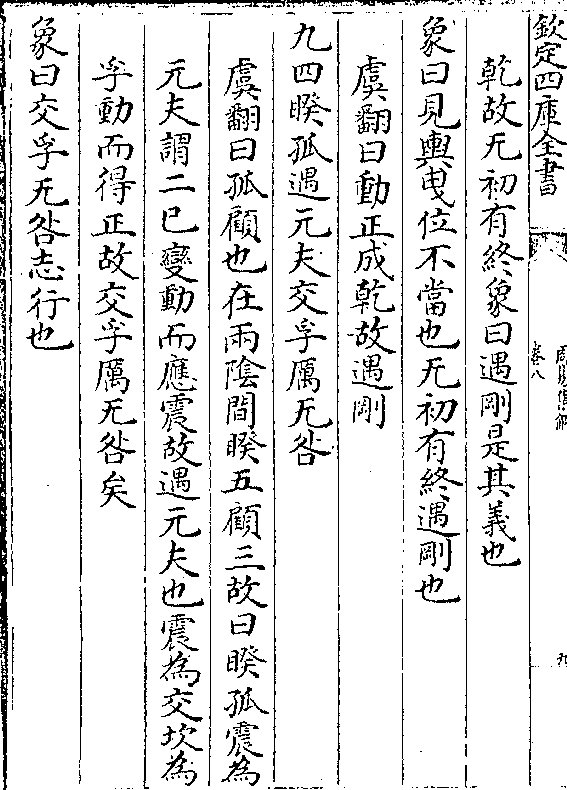 欽定四庫全書
卷八
九
乾故无初有終象曰遇剛是其義也
象曰見輿曳位不當也无初有終遇剛也
虞翻曰動正成乾故遇剛
九四睽孤遇元夫交孚厲无咎
虞翻曰孤顧也在兩陰間睽五顧三故曰睽孤震為
元夫謂二已變動而應震故遇元夫也震為交坎為
孚動而得正故交孚厲无咎矣
象曰交孚无咎志行也